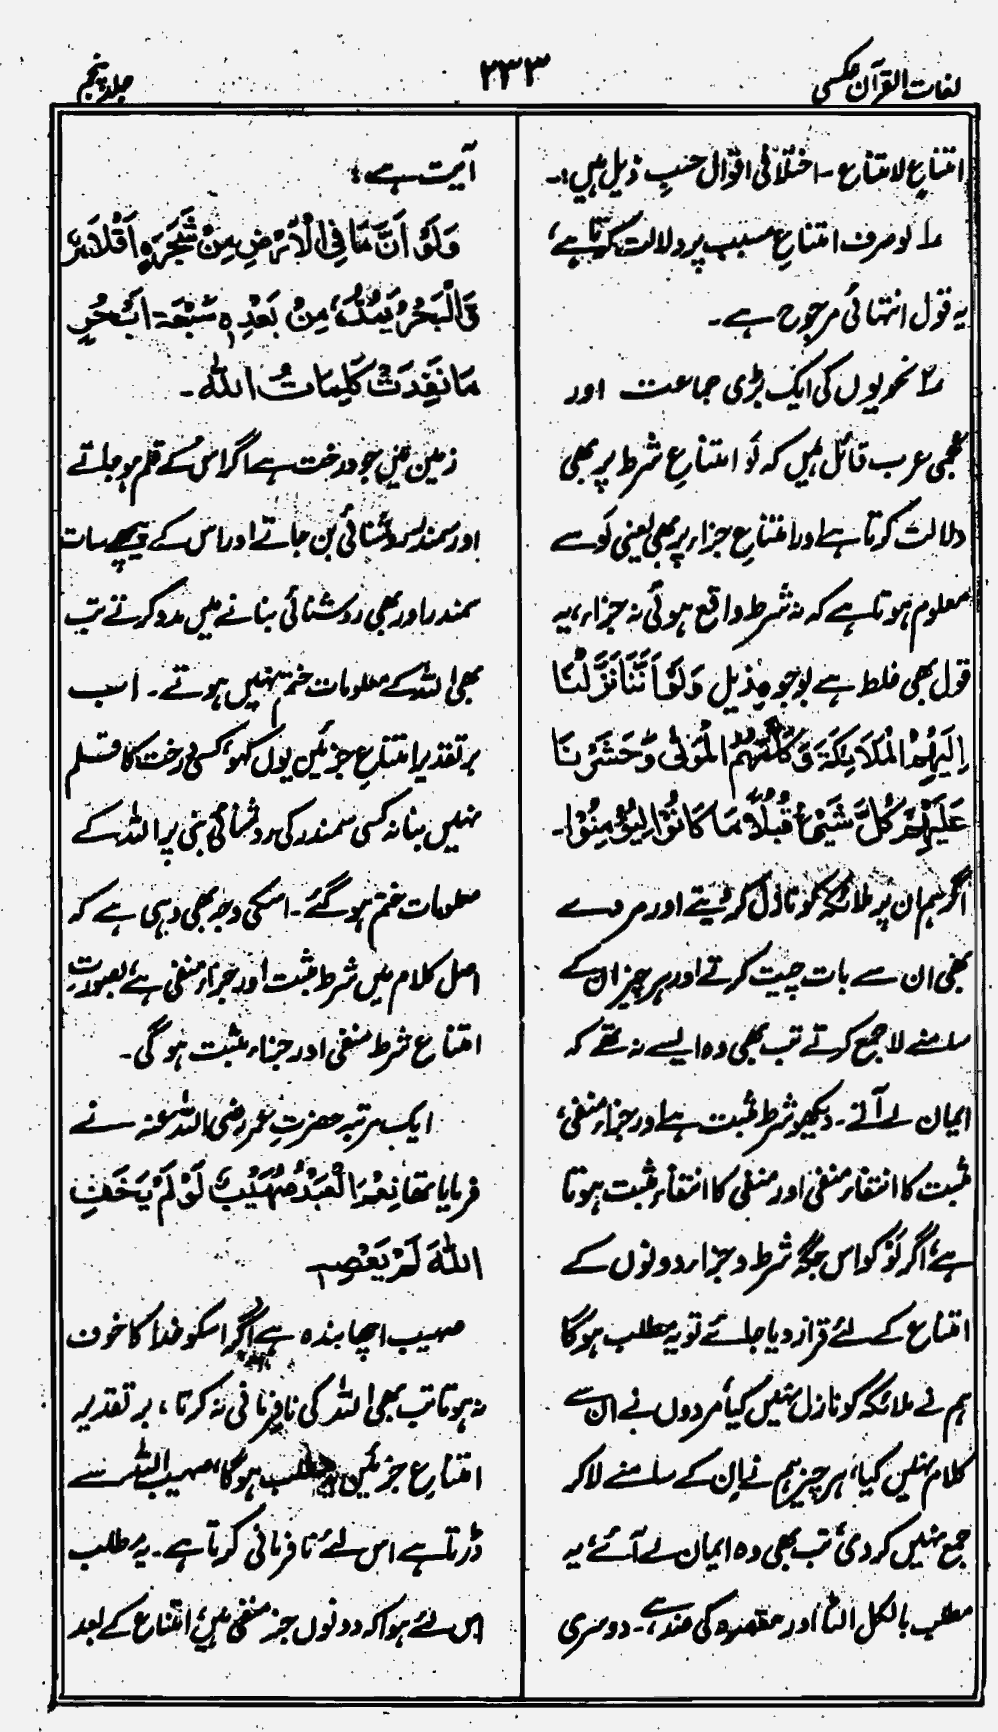 لغات القرآن عکسی
۲۳۳
جلد پنجم
امتناعِ لامتناع ۔ اختلافی اقوال حسبِ ذیل ہیں:۔
۱؎ لو صرف امتناعِ مسبب پر دلالت کرتا ہے،
یہ قول انتہائی مرجوح ہے۔
۲؎ نحویوں کی ایک بڑی جماعت اور
عجمی عرب قائل ہیں کہ لَو امتناعِ شرط پر بھی
دلالت کرتا ہے اور امتناعِ جزاء پر بھی یعنی لَو سے
معلوم ہوتا ہے کہ نہ شرط واقع ہوئی نہ جزاء، یہ
قول بھی غلط ہے بوجوہِ ذیل وَلَوْ اَنَّنَا نَزَّلْنَا
اِلَيْهِمُ الْمَلَائِكَةَ وَكَلَّمَهُمُ الْمَوْتٰى وَحَشَرْنَا
عَلَيْهِمْ كُلَّ شَيْءٍ قُبُلًا مَا كَانُوْا لِيُؤْمِنُوْا۔
اگر ہم ان پر ملائکہ کو نازل کر دیتے اور مردے
بھی ان سے بات چیت کرتے اور ہر چیز ان کے
سامنے لا جمع کرتے تب بھی وہ ایسے نہ تھے کہ
ایمان لے آتے۔ دیکھو شرط مثبت ہے اور جزاء منفی،
مثبت کا انتفاء منفی اور منفی کا انتفاء مثبت ہوتا
ہے، اگر لَوْ کو اس جگہ شرط و جزاء دونوں کے
امتناع کے لئے قرار دیا جائے تو یہ مطلب ہوگا
ہم نے ملائکہ کو نازل نہیں کیا، مردوں نے ان سے
کلام نہیں کیا، ہر چیز ہم نے ان کے سامنے لا کر
جمع نہیں کر دی، تب بھی وہ ایمان لے آئے، یہ
مطلب بالکل الٹا اور مقصد کی ضد ہے۔ دوسری
آیت ہے:
وَلَوْ اَنَّ مَا فِي الْاَرْضِ مِنْ شَجَرَةٍ اَقْلَامٌ
وَالْبَحْرُ يَمُدُّهُ مِنْ بَعْدِهٖ سَبْعَةُ اَبْحُرٍ
مَا نَفِدَتْ كَلِمَاتُ اللّٰه۔
زمین میں جو درخت ہے اگر اس کے قلم ہو جاتے
اور سمندر روشنائی بن جاتے اور اس کے پیچھے سات
سمندر اور بھی روشنائی بنانے میں مدد کرتے تب
بھی اللہ کے معلومات ختم نہیں ہوتے۔ اب
بر تقدیر امتناعِ جزئین یوں کہو، کسی درخت کا قلم
نہیں بنا نہ کسی سمندر کی روشنائی بنی پر اللہ کے
معلومات ختم ہو گئے۔ اسکی وجہ بھی وہی ہے کہ
اصل کلام میں شرط مثبت اور جزاء منفی ہے، بصورتِ
امتناع شرط منفی اور جزاء مثبت ہو گی۔
ایک مرتبہ حضرت عمر رضی اللہ عنہ نے
فرمایا تھا نِعْمَ الْعَبْدُ صُهَيْبٌ لَوْ لَمْ يَخَفِ
اللّٰهَ لَمْ يَعْصِهٖ
صہیب اچھا بندہ ہے اگر اسکو خدا کا خوف
نہ ہوتا تب بھی اللہ کی نافرمانی نہ کرتا، بر تقدیر
امتناعِ جزئین مطلب ہوگا، صہیب اللہ سے
ڈرتا ہے اس لئے نافرمانی کرتا ہے۔ یہ مطلب
اس لئے ہوا کہ دونوں جزء منفی ہیں، امتناع کے بعد